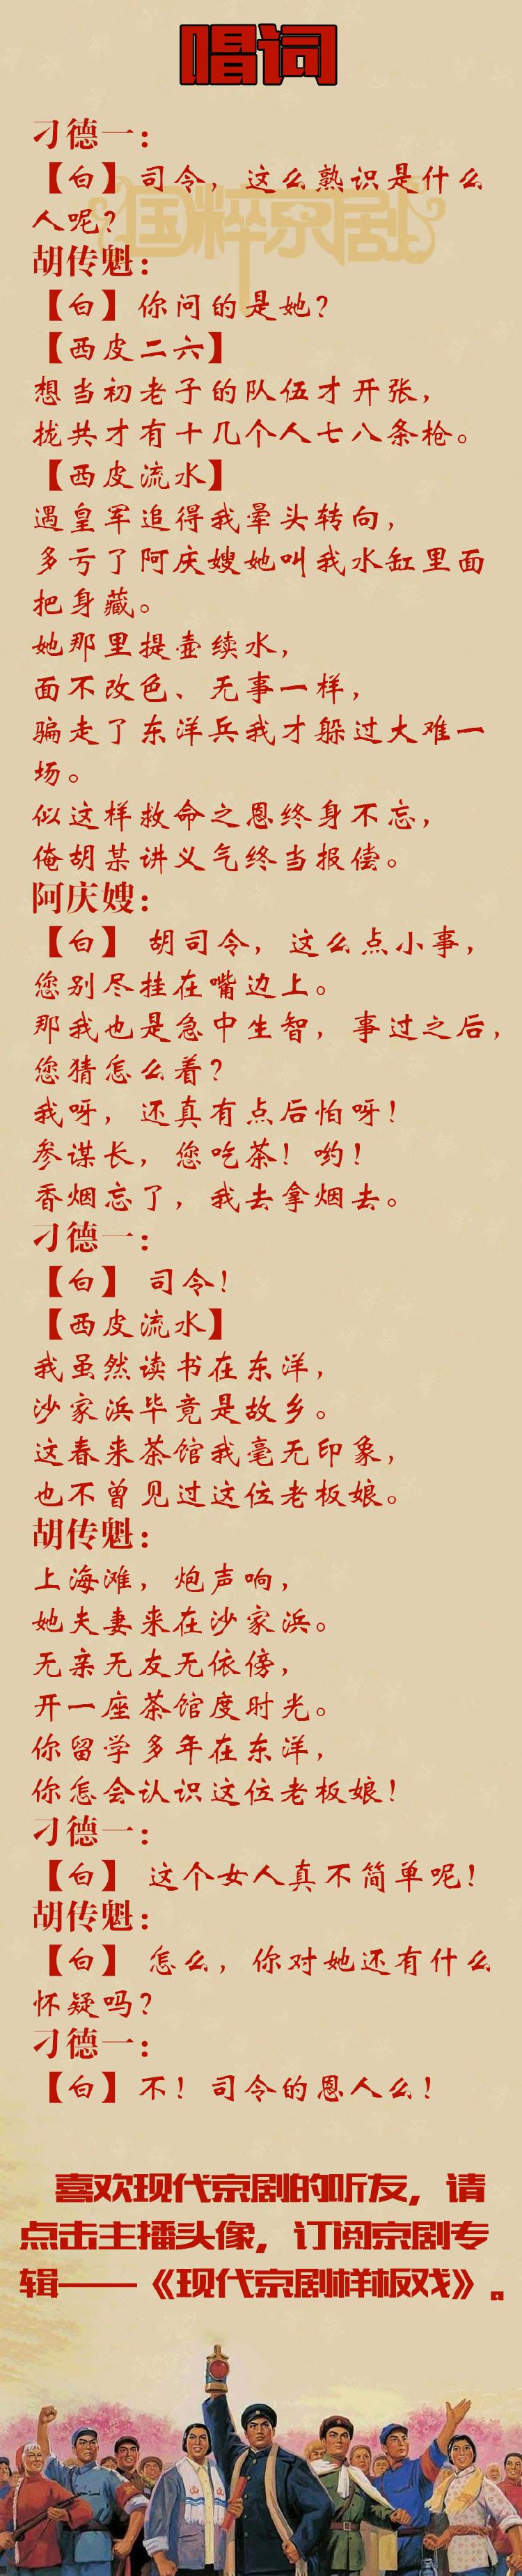 唱词
刁德一：
【白】司令，这么熟识是什么
人呢？
国粹京剧
胡传魁：
【白】你问的是她？
【西皮二六】
想当初老子的队伍才开张，
拢共才有十几个人七八条枪。
【西皮流水】
遇皇军追得我晕头转向，
多亏了阿庆嫂她叫我水缸里面
把身藏。
她那里提壶续水，
面不改色、无事一样，
骗走了东洋兵我才躲过大难一
场。
似这样救命之恩终身不忘，
俺胡某讲义气终当报偿。
阿庆嫂：
【白】 胡司令，这么点小事，
您别尽挂在嘴边上。
那我也是急中生智，事过之后，
您猜怎么着？
我呀，还真有点后怕呀！
参谋长，您吃茶！哟！
香烟忘了，我去拿烟去。
刁德一：
【白】 司令！
【西皮流水】
我虽然读书在东洋，
沙家浜毕竟是故乡。
这春来茶馆我毫无印象，
也不曾见过这位老板娘。
胡传魁：
上海滩，炮声响，
她夫妻来在沙家浜。
无亲无友无依傍，
开一座茶馆度时光。
你留学多年在东洋，
你怎会认识这位老板娘！
刁德一：
【白】 这个女人真不简单呢！
胡传魁：
【白】 怎么，你对她还有什么
怀疑吗？
刁德一：
【白】不！司令的恩人么！
喜欢现代京剧的听友，请
点击主播头像，订阅京剧专
辑——《现代京剧样板戏》。